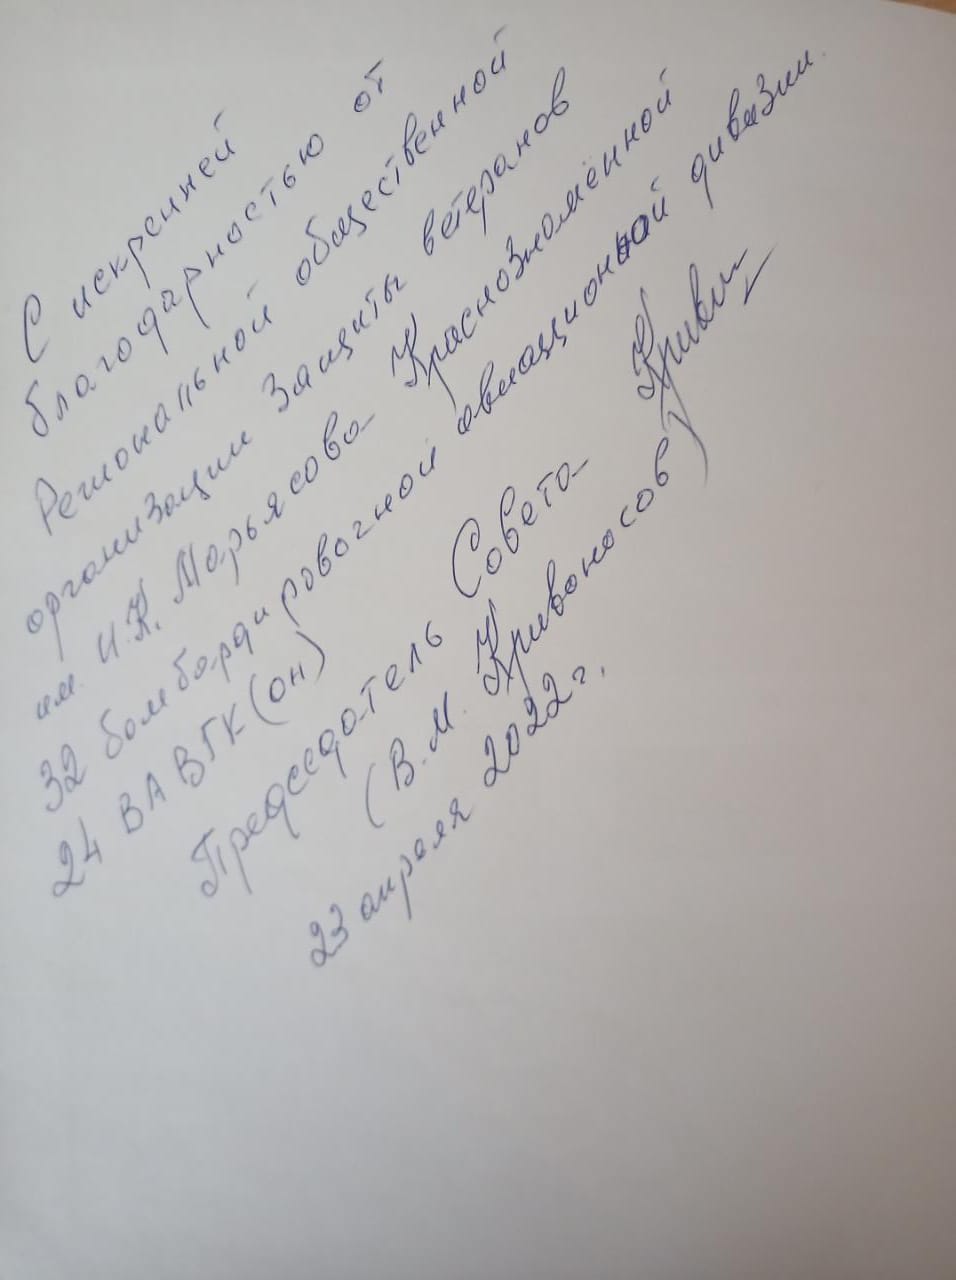 С искренней
благодарностью от
Региональной общественной
организации Защиты ветеранов
им. И.К. Марьясова Краснознамённой
32 бомбардировочной авиационной дивизии.
24 ВА ВГК (ОН)
Председатель Совета
(В.М. Кривоносов)
23 апреля 2022 г.